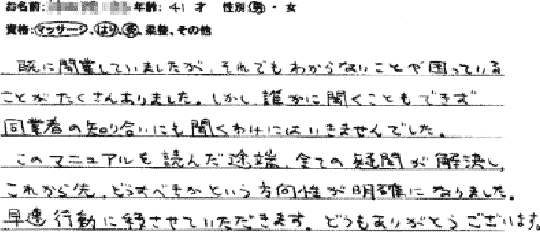 お名前: 年齢: 41 才 性別 男・女
資格: マッサージ、はり、灸、柔整、その他
既に開業していましたが、それでもわからないことや困っている
ことがたくさんありました。しかし誰かに聞くこともできず
同業者の知り合いにも聞くわけにはいきませんでした。
このマニュアルを読んだ途端、全ての疑問が解決し、
これから先、どうすべきかという方向性が明確になりました。
早速行動に移させていただきます。どうもありがとうございます。